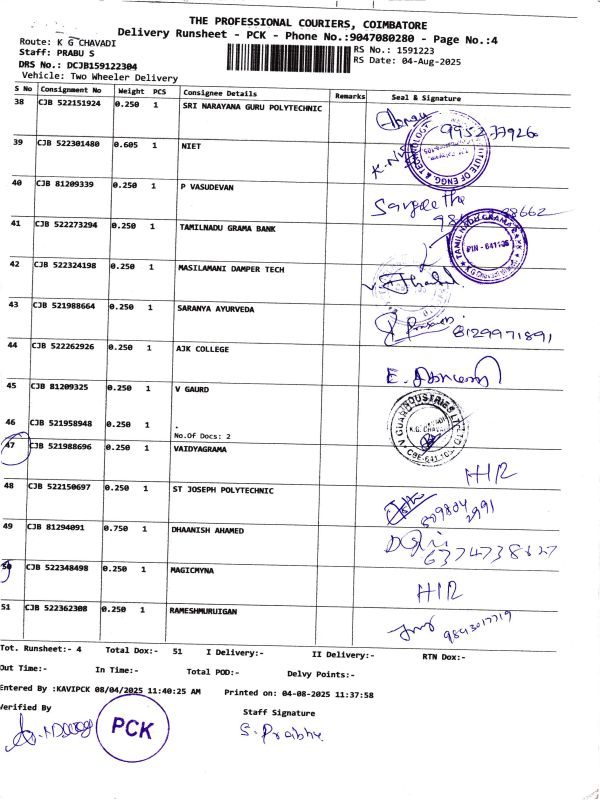 THE PROFESSIONAL COURIERS, COIMBATORE
Delivery Runsheet - PCK - Phone No.:9047080280 - Page No.:4
Route: K G CHAVADI
RS No.: 1591223
Staff: PRABU S
RS Date: 04-Aug-2025
DRS No.: DCJB159122304
Vehicle: Two Wheeler Delivery
S No Consignment No Weight PCS Consignee Details Remarks Seal & Signature
38 CJB 522151924 0.250 1 SRI NARAYANA GURU POLYTECHNIC
995277926
39 CJB 522301480 0.605 1 NIET
40 CJB 81209339 0.250 1 P VASUDEVAN
Sangeetha
41 CJB 522273294 0.250 1 TAMILNADU GRAMA BANK
TAMIL NADU GRAMA BANK
PIN - 641105
42 CJB 522324198 0.250 1 MASILAMANI DAMPER TECH
43 CJB 521988664 0.250 1 SARANYA AYURVEDA
8129971891
44 CJB 522262926 0.250 1 AJK COLLEGE
45 CJB 81209325 0.250 1 V GAURD
V GUARD INDUSTRIES LTD
K.G. CHAVADI
CBE-641 105
46 CJB 521958948 0.250 1 .
No.Of Docs: 2
47 CJB 521988696 0.250 1 VAIDYAGRAMA
H/R
48 CJB 522150697 0.250 1 ST JOSEPH POLYTECHNIC
809804
2991
49 CJB 81294091 0.750 1 DHAANISH AHAMED
6374738627
50 CJB 522348498 0.250 1 MAGICMYNA
H/R
51 CJB 522362308 0.250 1 RAMESHMURUIGAN
9843017719
Tot. Runsheet:- 4 Total Dox:- 51 I Delivery:- II Delivery:- RTN Dox:-
Out Time:- In Time:- Total POD:- Delvy Points:-
Entered By :KAVIPCK 08/04/2025 11:40:25 AM Printed on: 04-08-2025 11:37:58
Verified By
Staff Signature
PCK
S. Prabhu